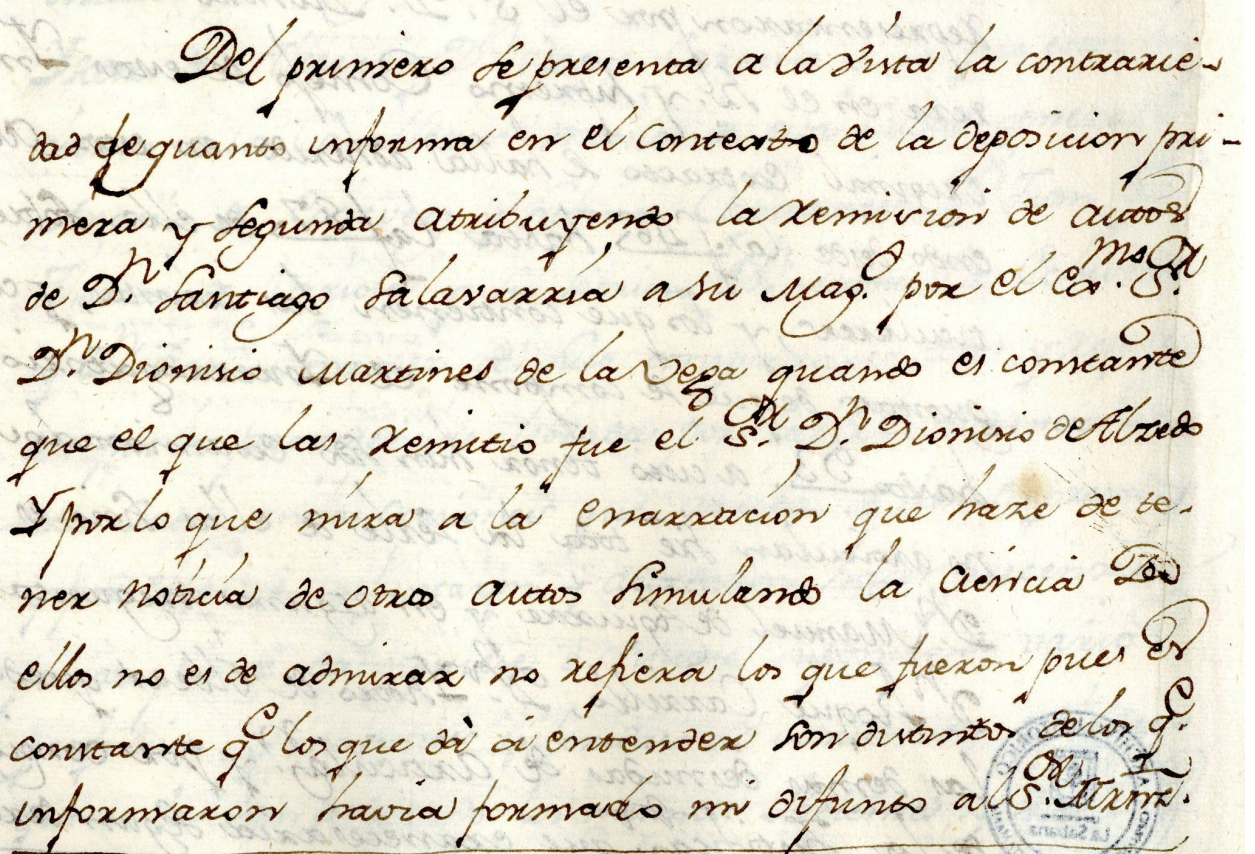 Del primero se presenta a la vista la contrarie-
dad de quanto informa en el Contexto de la deposicion pri-
mera y segunda atribuyendo la remision de autos
de Dn. Santiago Salavarría a su Magd. por el Exmo. Sr.
Dn. Dionisio Martines de la Vega quando es constante
que el que las remitio fue el Sr. Dn. Dionisio de Alzedo
Y por lo que mira a la enarracion que haze de te-
ner noticia de otros autos simulando la ciencia de
ellos no es de admirar no refiera los que fueron pues es
constante qe. los que dà à entender son distintos de los qe.
informaron havia formado mi difunto al Sr.